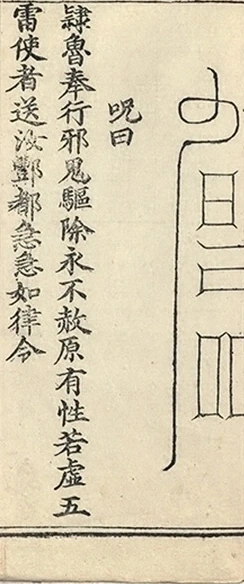 呪曰
隷魯奉行邪鬼驅除永不赦原有性若虛五
雷使者送汝酆都急急如律令